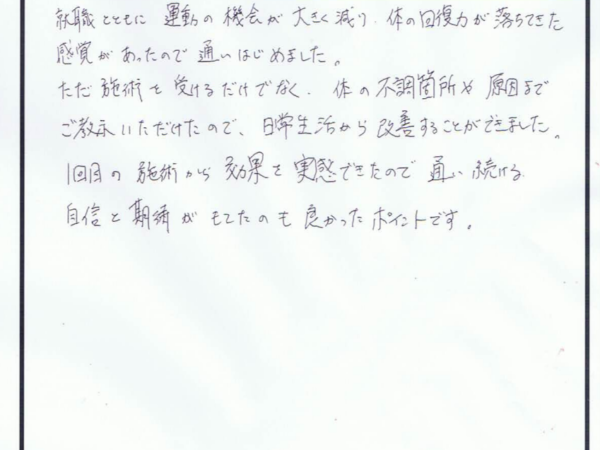 就職とともに 運動の 機会が 大きく減り、体の回復力が落ちてきた
感覚が あったので 通いはじめました。
ただ 施術を 受けるだけでなく、体の 不調箇所や 原因まで
ご教示いただけたので、日常生活から 改善することができました。
1回目の 施術から 効果を 実感できたので 通い 続ける
自信と 期待が もてたのも 良かった ポイントです。